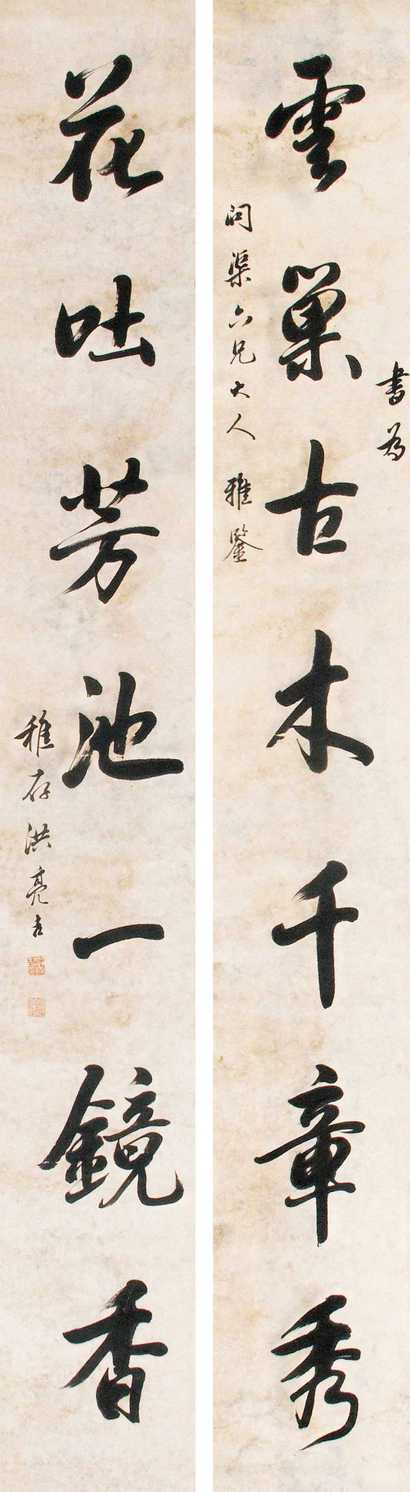 雲巢古木千章秀
書為
問渠六兄大人雅鑒
花吐芳池一鏡香
稚存洪亮吉